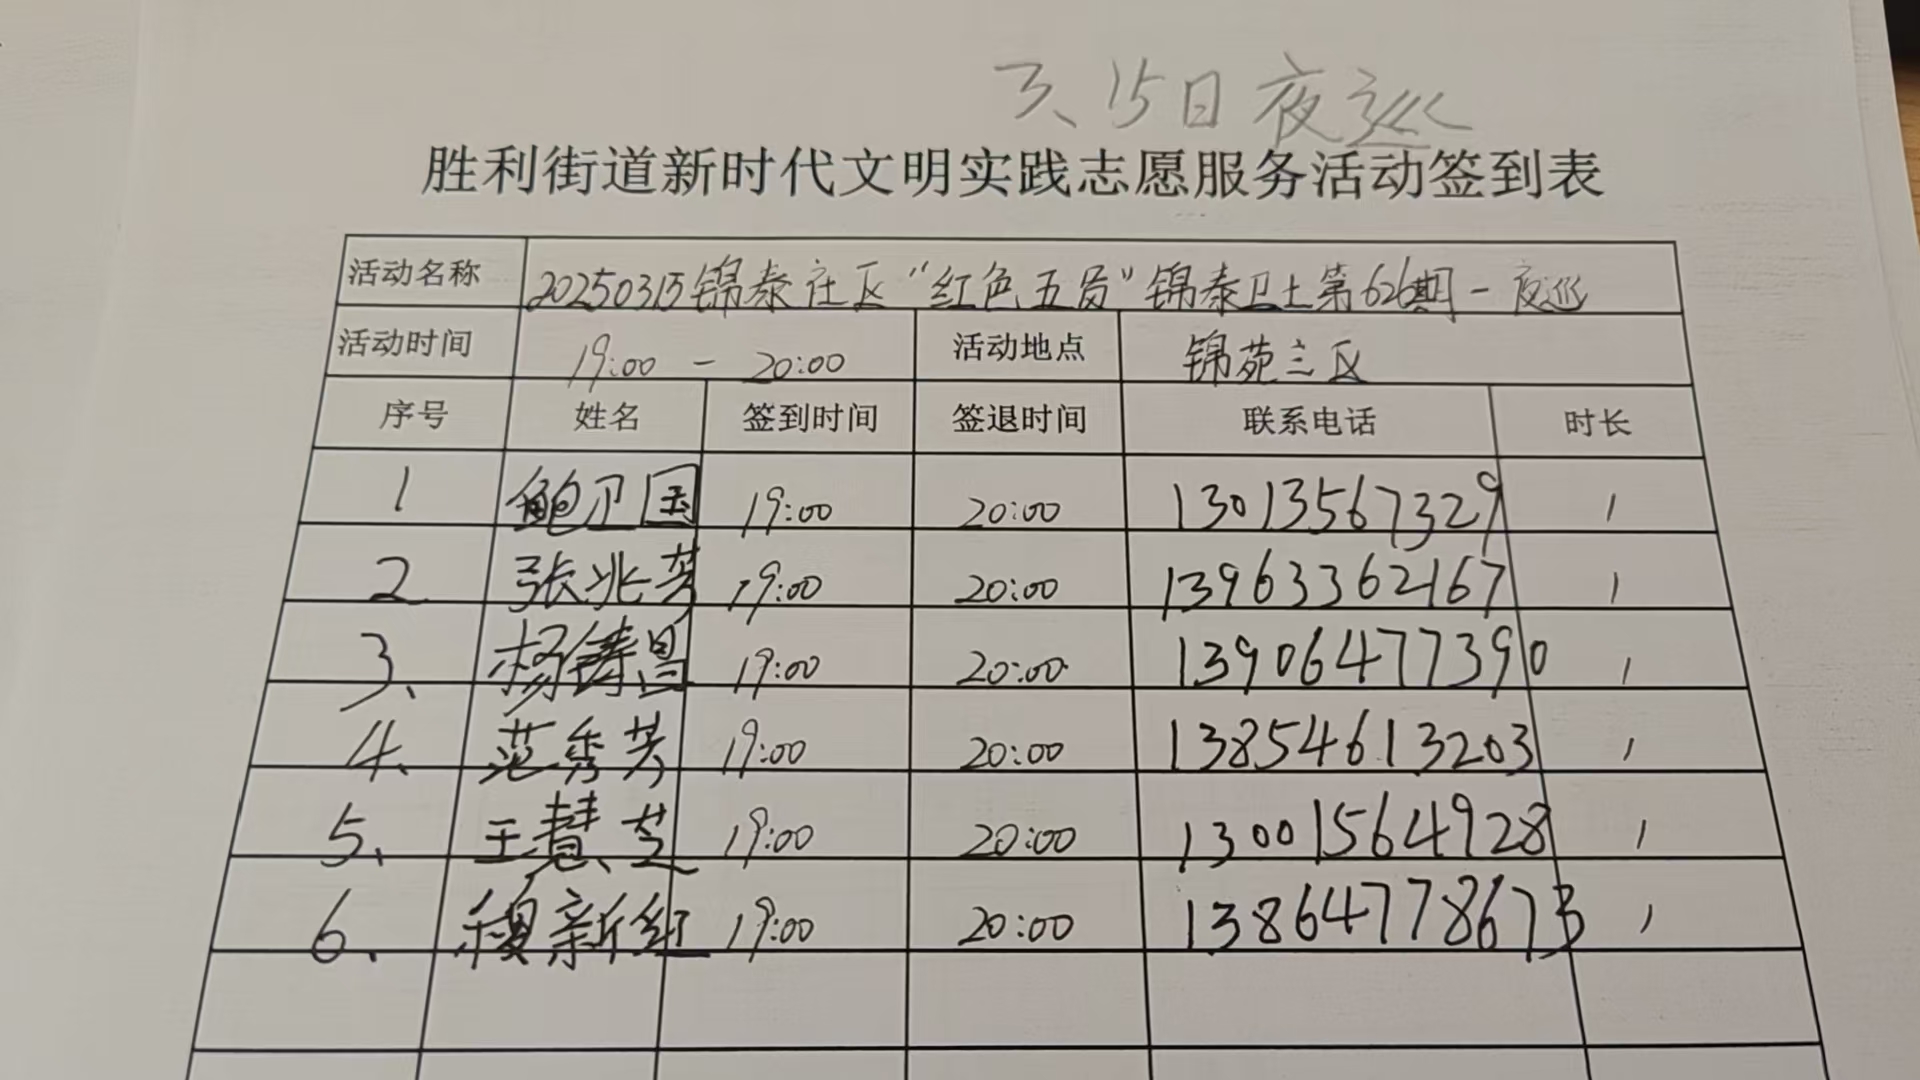 3、15日夜巡
胜利街道新时代文明实践志愿服务活动签到表
活动名称 20250315锦泰社区“红色五员”锦泰卫士第626期-夜巡
活动时间 19:00 - 20:00 活动地点 锦苑三区
序号 姓名 签到时间 签退时间 联系电话 时长
1 鲍卫国 19:00 20:00 13013567329 1
2 张兆芳 19:00 20:00 13963362167 1
3、 杨铸昌 19:00 20:00 13906477390 1
4、 范秀芳 19:00 20:00 13854613203 1
5、 王慧芝 19:00 20:00 13001564928 1
6、 穆新红 19:00 20:00 13864778673 1